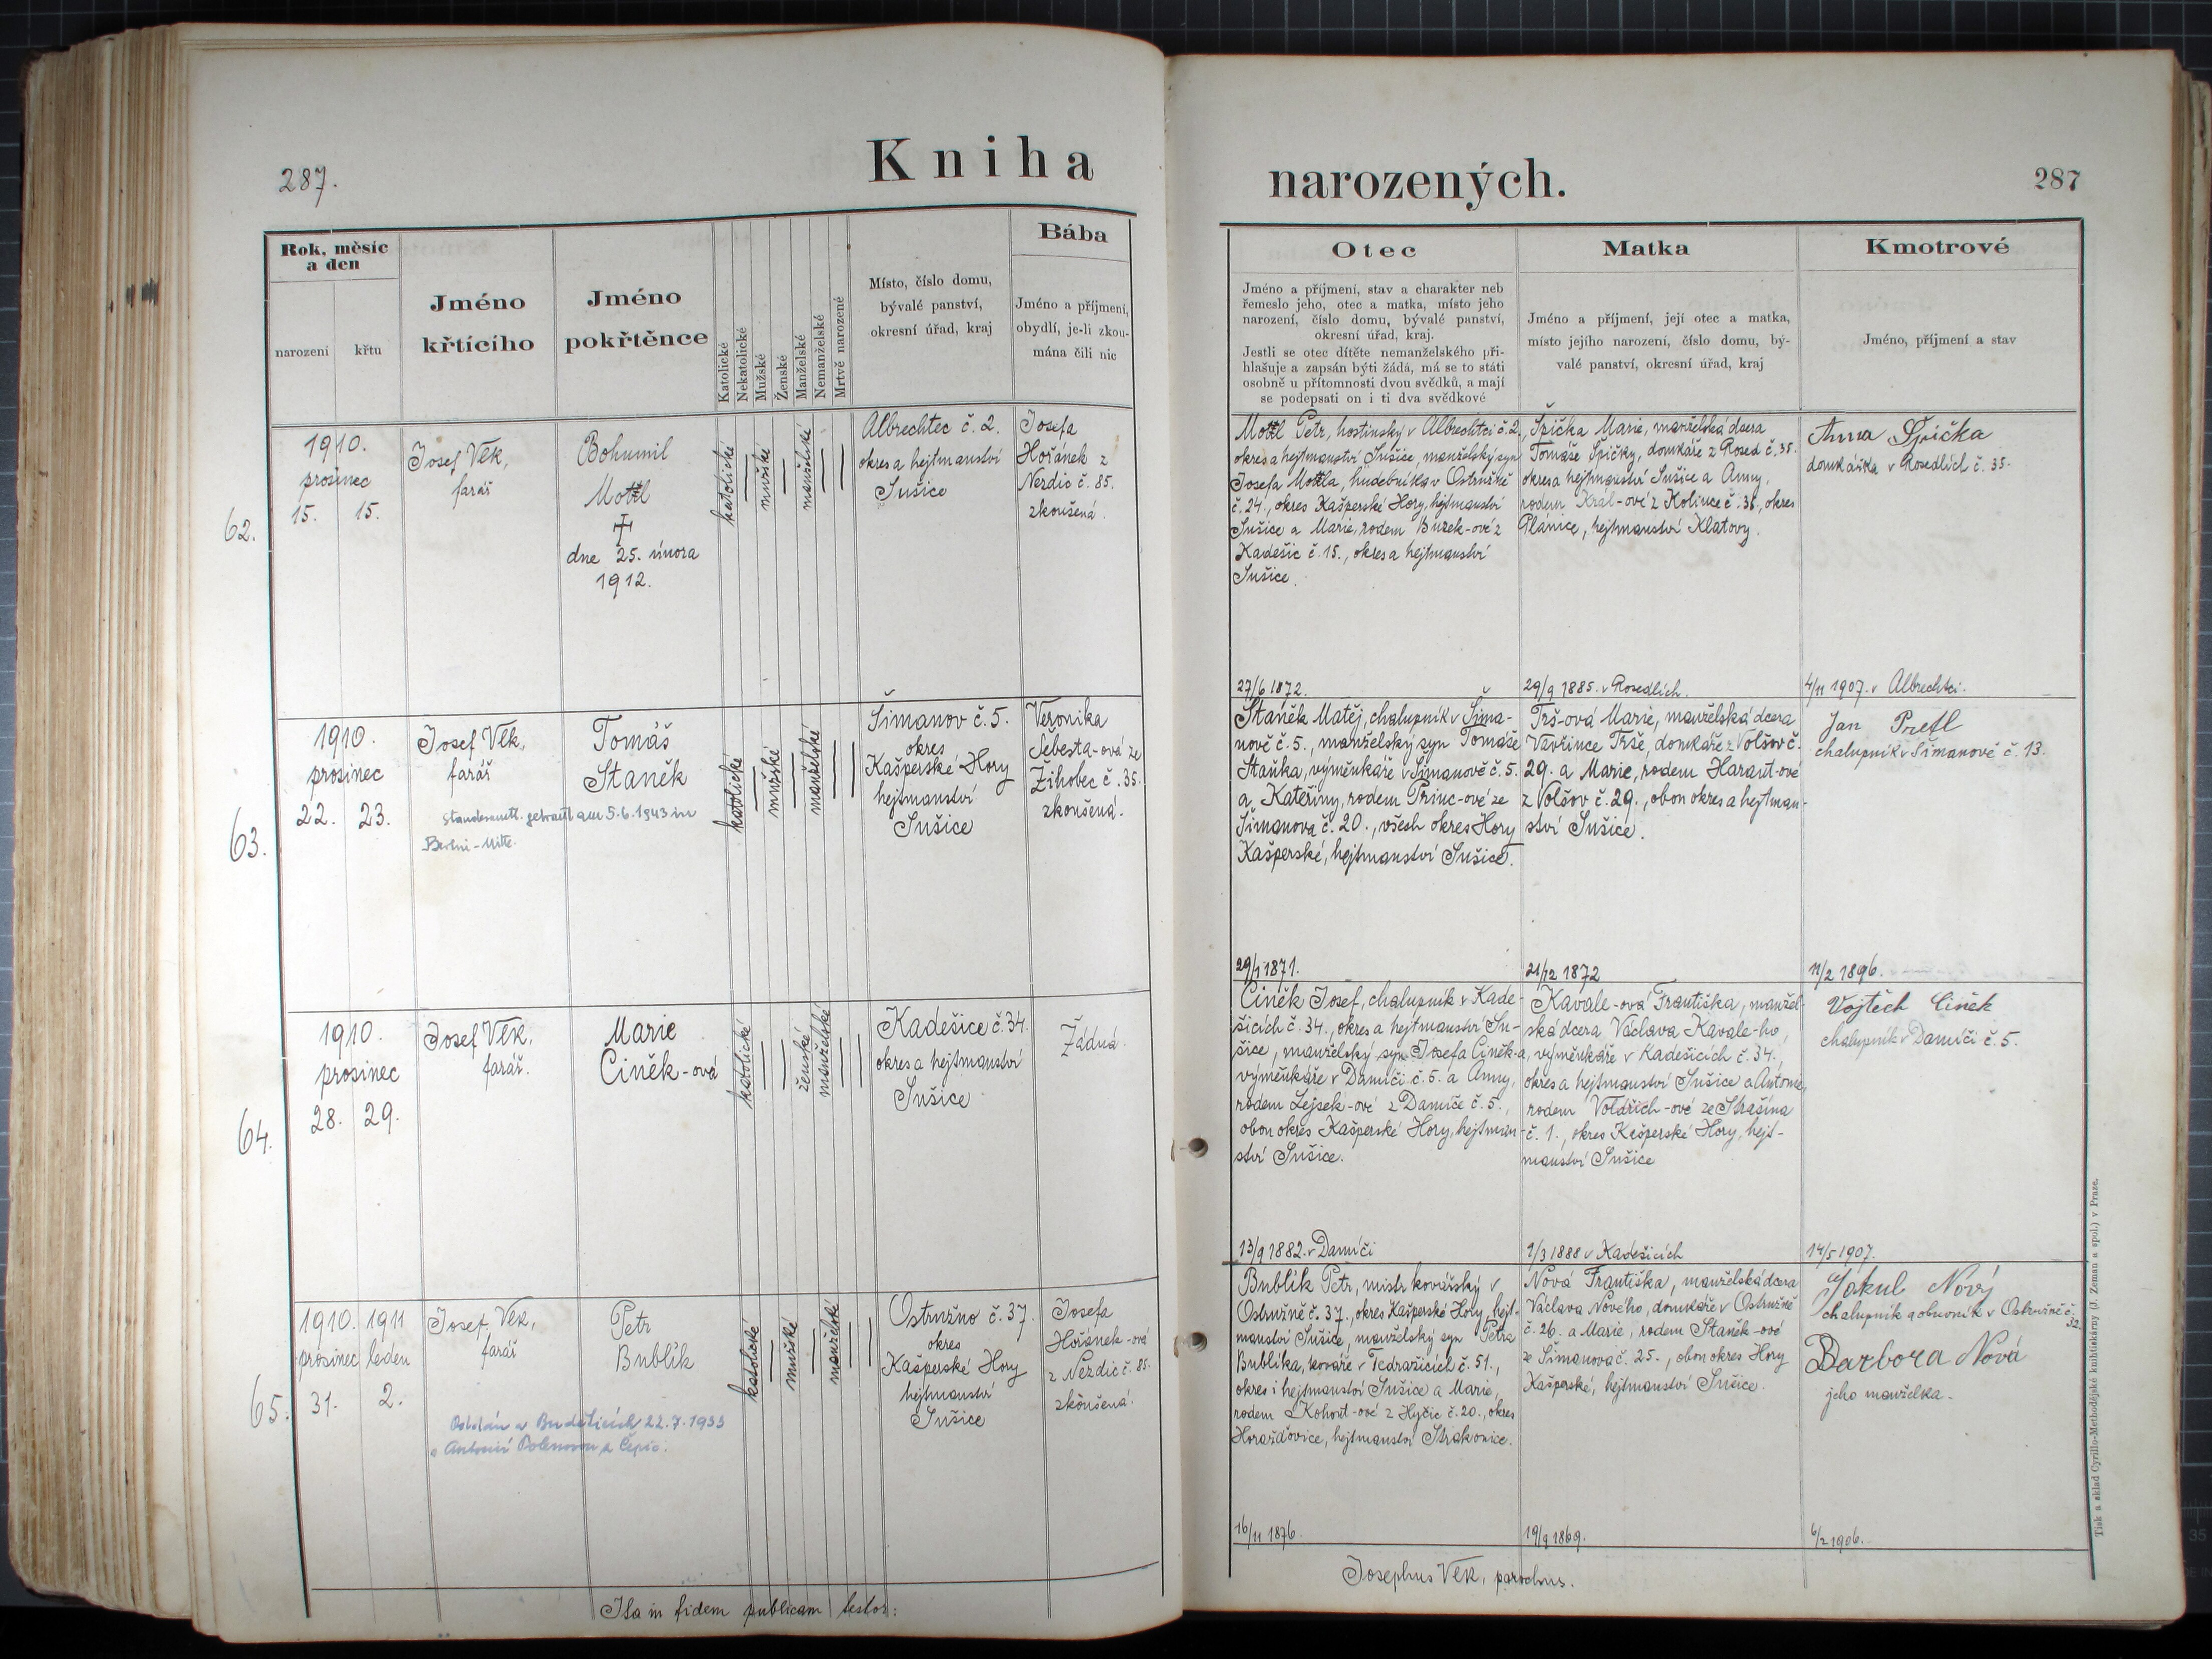 287.
Kniha
Rok, měsíc
a den
narození
křtu
Jméno
křtícího
Jméno
pokřtěnce
Katolické
Nekatolické
Mužské
Ženské
Manželské
Nemanželské
Mrtvě narozené
Místo, číslo domu,
bývalé panství,
okresní úřad, kraj
Bába
Jméno a příjmení,
obydlí, je-li zkou-
mána čili nic
62.
1910.
prosinec
15. 15.
Josef Vlk,
farář
Bohumil
Motl
dne 25. února
1912.
katolické
mužské
manželské
Albrechtec č. 2.
okres a hejtmanství
Sušice
Josefa
Hořánek z
Nezdic č. 85.
zkoušená.
63.
1910.
prosinec
22. 23.
Josef Vlk,
farář
Standesamtl. getraut am 5.6.1943 in
Berlin-Mitte.
Tomáš
Staněk
katolické
mužské
manželské
Šimanov č. 5.
okres
Kašperské Hory
hejtmanství
Sušice
Veronika
Šebesta-ová ze
Žihobec č. 35.
zkoušená.
64.
1910.
prosinec
28. 29.
Josef Vlk,
farář.
Marie
Činěk-ová
katolické
ženské
manželské
Kadešice č. 34.
okres a hejtmanství
Sušice
Žádná.
65.
1910. 1911
prosinec leden
31. 2.
Josef Vlk,
farář
Petr
Bublík
Oddán v Buděticích 22.7.1933
s Antonií Polenovou z Čepic.
katolické
mužské
manželské
Ostružno č. 37.
okres
Kašperské Hory
hejtmanství
Sušice
Josefa
Hořánek-ová
z Nezdic č. 85.
zkoušená.
Ita in fidem publicam testor:
narozených.
287
Otec
Jméno a přijmení, stav a charakter neb
řemeslo jeho, otec a matka, místo jeho
narození, číslo domu, bývalé panství,
okresní úřad, kraj.
Jestli se otec dítěte nemanželského při-
hlašuje a zapsán býti žádá, má se to státi
osobně u přítomnosti dvou svědků, a mají
se podepsati on i ti dva svědkové
Matka
Jméno a příjmení, její otec a matka,
místo jejího narození, číslo domu, bý-
valé panství, okresní úřad, kraj
Kmotrové
Jméno, příjmení a stav
Motl Petr, hostinský v Albrechtci č. 2.
okres a hejtmanství Sušice, manželský syn
Josefa Motla, hudebníka v Ostružně
č. 24., okres Kašperské Hory, hejtmanství
Sušice a Marie, rodem Buzek-ové z
Kadešic č. 15., okres a hejtmanství
Sušice.
27/6 1872.
Špička Marie, manželská dcera
Tomáše Špičky, domkáře z Rosed č. 35.
okres a hejtmanství Sušice a Anny,
rodem Král-ové z Kolince č. 38., okres
Plánice, hejtmanství Klatovy.
29/9 1885. v Rosedlích.
Anna Špička
domkářka v Rosedlích č. 35.
4/11 1907. v Albrechtci.
Staněk Matěj, chalupník v Šima-
nově č. 5., manželský syn Tomáše
Staňka, výměnkáře v Šimanově č. 5.
a Kateřiny, rodem Princ-ové ze
Šimanova č. 20., všech okres Hory
Kašperské, hejtmanství Sušice.
29/1 1871.
Trš-ová Marie, manželská dcera
Vavřince Trše, domkáře z Volšov č.
29. a Marie, rodem Haraut-ové
z Volšov č. 29., obou okres a hejtman-
ství Sušice.
21/12 1872
Jan Pretl
chalupník v Šimanově č. 13.
11/2 1896.
Činěk Josef, chalupník v Kade-
šicích č. 34., okres a hejtmanství Su-
šice, manželský syn Josefa Činěk-a,
výměnkáře v Damíči č. 5. a Anny,
rodem Lejsek-ové z Damíče č. 5.,
obou okres Kašperské Hory, hejtman-
ství Sušice.
13/9 1882. v Damíči
Kavale-ová Františka, manžel-
ská dcera Václava Kavale-ho,
výměnkáře v Kadešicích č. 34.,
okres a hejtmanství Sušice a Antonie,
rodem Voldřich-ové ze Strašína
č. 1., okres Kašperské Hory, hejt-
manství Sušice
1/3 1888 v Kadešicích
Vojtěch Činěk
chalupník v Damíči č. 5.
14/5 1907.
Bublík Petr, mistr kovářský v
Ostružně č. 37., okres Kašperské Hory, hejt-
manství Sušice, manželský syn Petra
Bublíka, kováře v Tedražicích č. 51.,
okres i hejtmanství Sušice a Marie,
rodem Kohout-ové z Hyčic č. 20., okres
Horažďovice, hejtmanství Strakonice.
16/11 1876.
Nová Františka, manželská dcera
Václava Nového, domkáře v Ostružně
č. 26. a Marie, rodem Staněk-ové
ze Šimanova č. 25., obou okres Hory
Kašperské, hejtmanství Sušice.
19/9 1869.
Jakub Nový
chalupník a obuvník v Ostružně č.
32.
Barbora Nová
jeho manželka.
6/2 1906.
Josephus Vlk, parochus.
Tisk a sklad Cyrillo-Methodějské knihtiskárny (J. Zeman a spol.) v Praze.